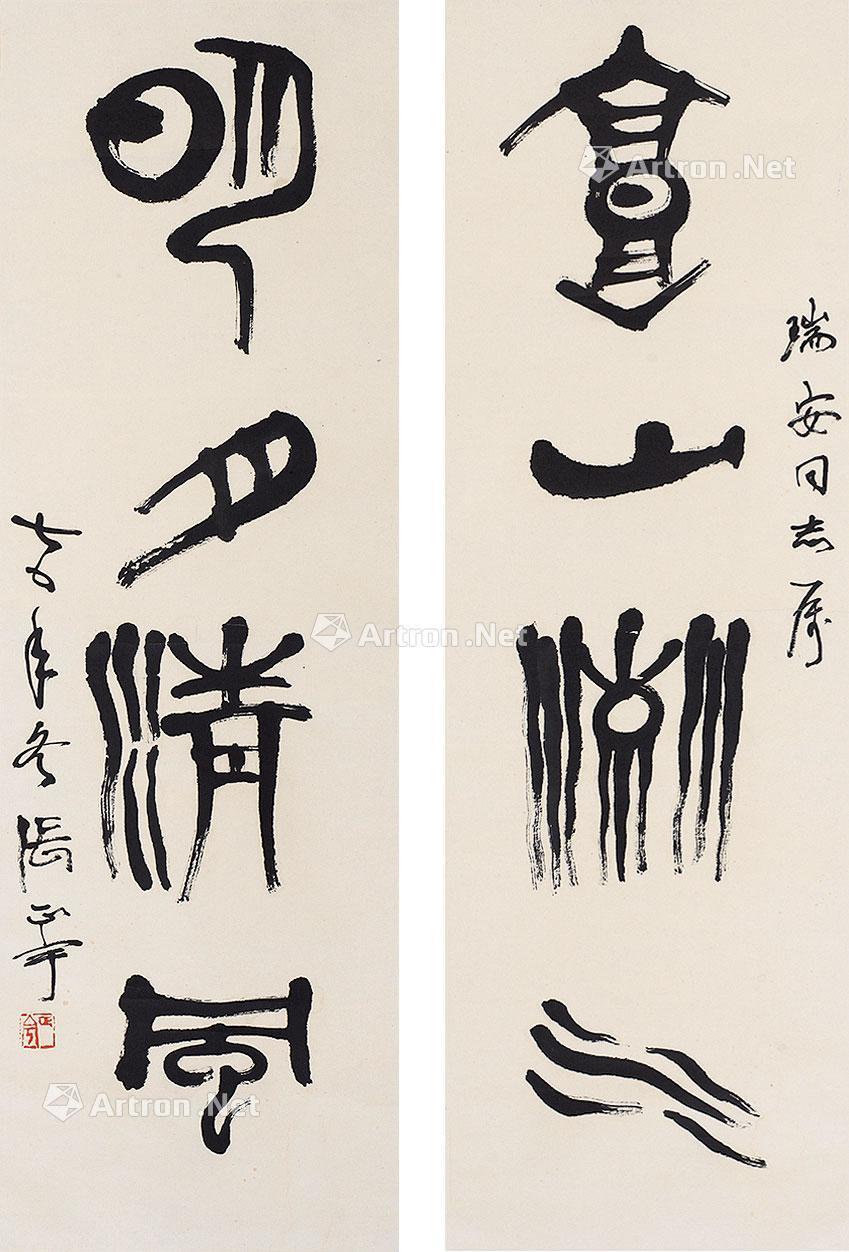 瑞安同志属
高山流水
明月清风
七五年冬张正宇
正宇
Artron.Net
Artron.Net
Artron.Net